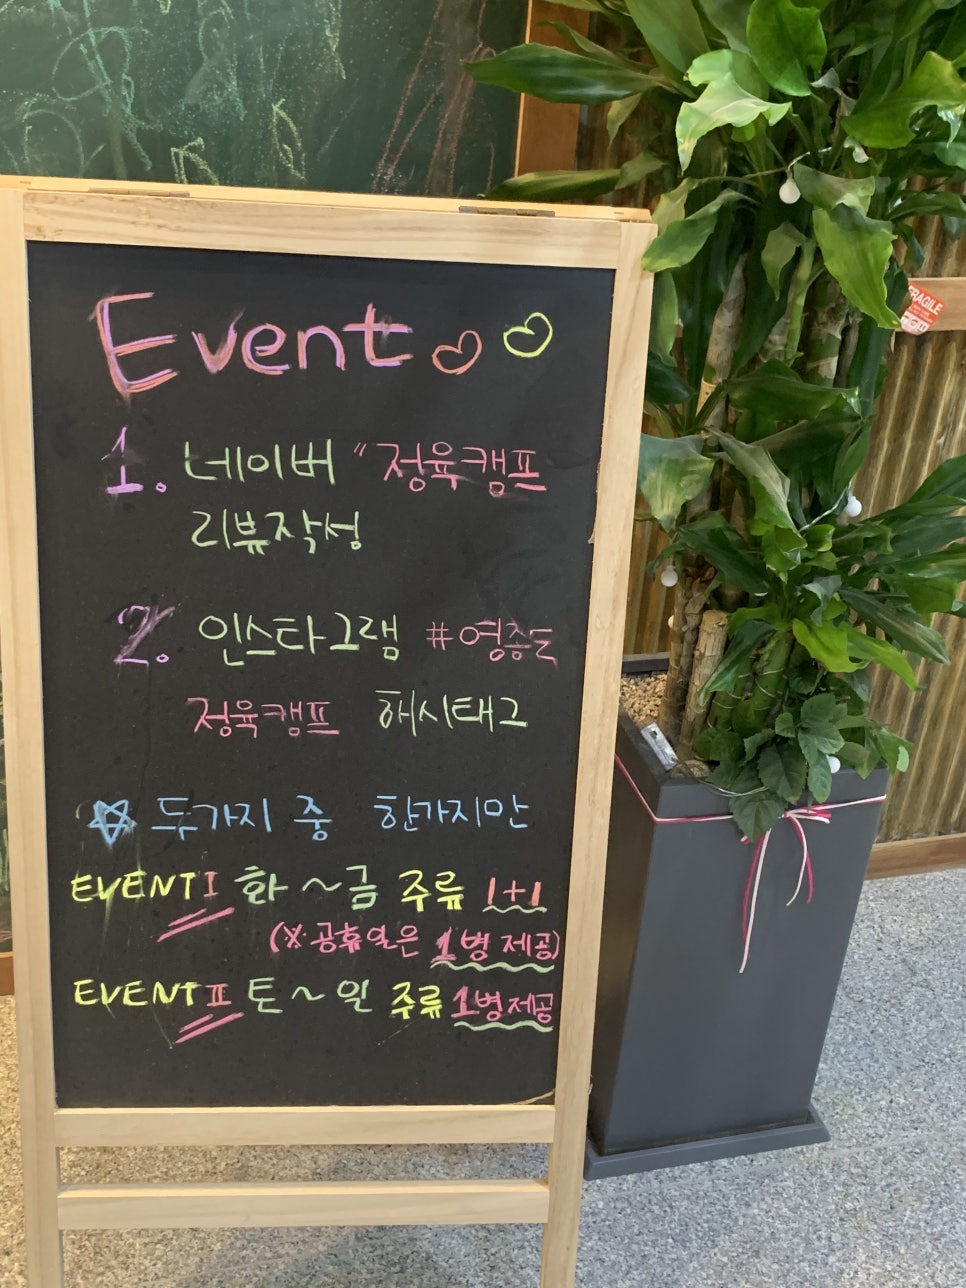 Event
1. 네이버 "정육캠프
리뷰작성
2. 인스타그램 #영종도
정육캠프 해시태그
☆ 두가지 중 한가지만
EVENT I 화~금 주류 1+1
(※공휴일은 1병 제공)
EVENT II 토~일 주류 1병제공
FRAGILE